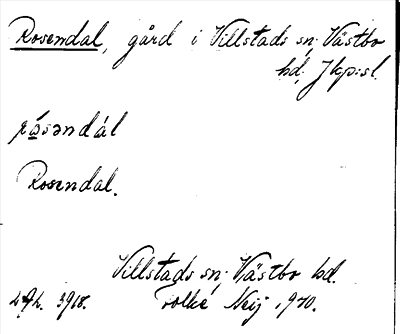 Rosendal, gård i Villstads sn; Västbo
hd; Jkp:sl.
rósəndál
Rosendal.
Villstads sn; Västbo hd.
3918. Folke Neij 1910.